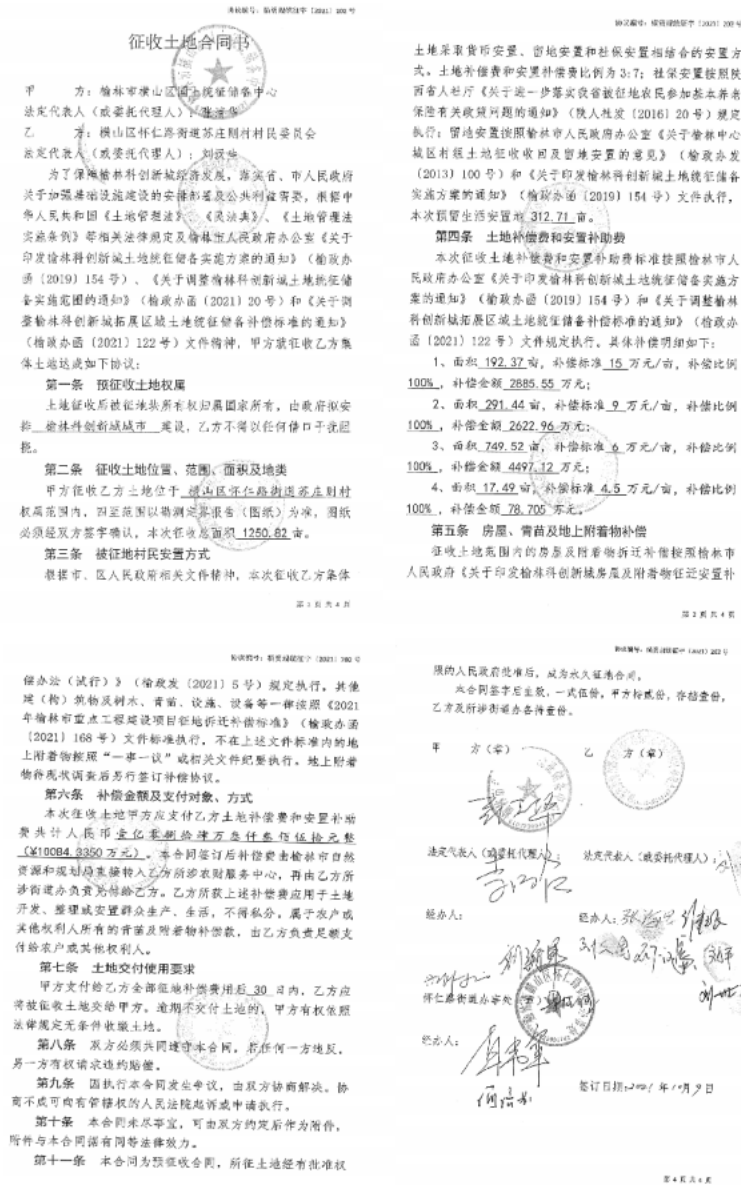 征收土地合同书
甲　　方：榆林市横山区国土统征储备中心
法定代表人（或委托代理人）：
乙　　方：横山区怀仁路街道苏庄则村村民委员会
法定代表人（或委托代理人）：刘汉
为了保障榆林科创新城经济发展，落实省、市人民政府
关于加强基础设施建设的安排部署及公共利益需要，根据中
华人民共和国《土地管理法》、《民法典》、《土地管理法
实施条例》等相关法律规定及榆林市人民政府办公室《关于
印发榆林科创新城土地统征储备实施方案的通知》（榆政办
函〔2019〕154号）、《关于调整榆林科创新城土地统征储
备实施范围的通知》（榆政办函〔2021〕20号）和《关于调
整榆林科创新城拓展区域土地统征储备补偿标准的通知》
（榆政办函〔2021〕122号）文件精神，甲方就征收乙方集
体土地达成如下协议：
第一条　预征收土地权属
土地征收后被征地块所有权归属国家所有，由政府拟安
排 榆林科创新城城市 建设，乙方不得以任何借口干扰阻
挠。
第二条　征收土地位置、范围、面积及地类
甲方征收乙方土地位于 横山区怀仁路街道苏庄则村
权属范围内，四至范围以勘测定界报告（图纸）为准，图纸
必须经双方签字确认，本次征收总面积 1250.82 亩。
第三条　被征地村民安置方式
根据市、区人民政府相关文件精神，本次征收乙方集体
第 1 页 共 4 页
土地采取货币安置、留地安置和社保安置相结合的安置方
式。土地补偿费和安置补偿费比例为3:7；社保安置按照陕
西省人社厅《关于进一步落实我省被征地农民参加基本养老
保险有关政策问题的通知》（陕人社发〔2016〕20号）规定
执行；留地安置按照榆林市人民政府办公室《关于榆林中心
城区村组土地征收收回及留地安置的意见》（榆政办发
〔2013〕100号）和《关于印发榆林科创新城土地统征储备
实施方案的通知》（榆政办函〔2019〕154号）文件执行，
本次预留生活安置地 312.71 亩。
第四条　土地补偿费和安置补助费
本次征收土地补偿费和安置补助费标准按照榆林市人
民政府办公室《关于印发榆林科创新城土地统征储备实施方
案的通知》（榆政办函〔2019〕154号）和《关于调整榆林
科创新城拓展区域土地统征储备补偿标准的通知》（榆政办
函〔2021〕122号）文件规定执行。具体补偿明细如下：
1、面积 192.37 亩，补偿标准 15 万元/亩，补偿比例
100%，补偿金额 2885.55 万元；
2、面积 291.44 亩，补偿标准 9 万元/亩，补偿比例
100%，补偿金额 2622.96 万元；
3、面积 749.52 亩，补偿标准 6 万元/亩，补偿比例
100%，补偿金额 4497.12 万元；
4、面积 17.49 亩，补偿标准 4.5 万元/亩，补偿比例
100%，补偿金额 78.705 万元。
第五条　房屋、青苗及地上附着物补偿
征收土地范围内的房屋及附着物拆迁补偿按照榆林市
人民政府《关于印发榆林科创新城房屋及附着物征迁安置补
第 2 页 共 4 页
偿办法（试行）》（榆政发〔2021〕5号）规定执行。其他
建（构）筑物及树木、青苗、设施、设备等一律按照《2021
年榆林市重点工程建设项目征地拆迁补偿标准》（榆政办函
〔2021〕168号）文件标准执行，不在上述文件标准内的地
上附着物按照“一事一议”或相关文件纪要执行。地上附着
物待现状调查后另行签订补偿协议。
第六条　补偿金额及支付对象、方式
本次征收土地甲方应支付乙方土地补偿费和安置补助
费共计人民币 壹亿零捌拾肆万叁仟叁佰伍拾元整
（¥10084.3350万元）。本合同签订后补偿费由榆林市自然
资源和规划局直接转入乙方所涉农财服务中心，再由乙方所
涉街道办负责兑付给乙方。乙方所获上述补偿费应用于土地
开发、整理或安置群众生产、生活，不得私分。属于农户或
其他权利人所有的青苗及附着物补偿款，由乙方负责足额支
付给农户或其他权利人。
第七条　土地交付使用要求
甲方支付给乙方全部征地补偿费用后 30 日内，乙方应
将被征收土地交给甲方。逾期不交付土地的，甲方有权依照
法律规定无条件收缴土地。
第八条　双方必须共同遵守本合同，若任何一方违反，
另一方有权请求违约赔偿。
第九条　因执行本合同发生争议，由双方协商解决。协
商不成可向有管辖权的人民法院起诉或申请执行。
第十条　本合同未尽事宜，可由双方约定后作为附件，
附件与本合同拥有同等法律效力。
第十一条　本合同为预征收合同，所征土地经有批准权
限的人民政府批准后，成为永久征地合同。
本合同签字后生效，一式伍份，甲方持贰份，存档壹份，
乙方及所涉街道办各持壹份。
甲　　方（章）　　乙　　方（章）
法定代表人（或委托代理人）：　法定代表人（或委托代理人）：
经办人：　　经办人：
怀仁路街道办事处（章）
经办人：
签订日期：2021年10月9日
第 4 页 共 4 页